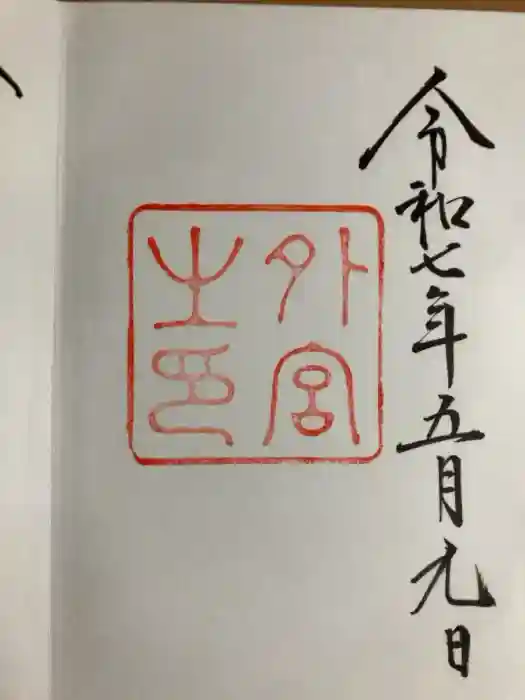 令和七年五月九日
外宮
之印